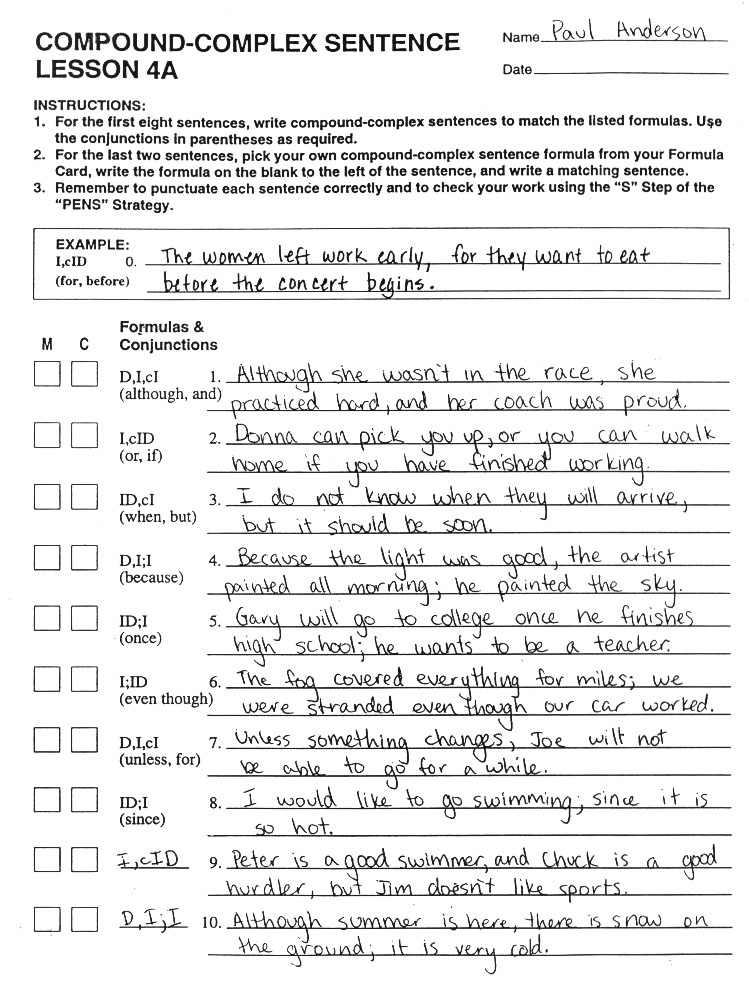 COMPOUND-COMPLEX SENTENCE
LESSON 4A
Name Paul Anderson
Date
INSTRUCTIONS:
1. For the first eight sentences, write compound-complex sentences to match the listed formulas. Use
the conjunctions in parentheses as required.
2. For the last two sentences, pick your own compound-complex sentence formula from your Formula
Card, write the formula on the blank to the left of the sentence, and write a matching sentence.
3. Remember to punctuate each sentence correctly and to check your work using the "S" Step of the
"PENS" Strategy.
EXAMPLE:
I,cID 0. The women left work early, for they want to eat
(for, before) before the concert begins.
Formulas &
M C Conjunctions
D,I,cI 1. Although she wasn't in the race, she
(although, and) practiced hard, and her coach was proud.
I,cID 2. Donna can pick you up, or you can walk
(or, if) home if you have finished working.
ID,cI 3. I do not know when they will arrive,
(when, but) but it should be soon.
D,I;I 4. Because the light was good, the artist
(because) painted all morning; he painted the sky.
ID;I 5. Gary will go to college once he finishes
(once) high school; he wants to be a teacher.
I;ID 6. The fog covered everything for miles; we
(even though) were stranded even though our car worked.
D,I,cI 7. Unless something changes, Joe will not
(unless, for) be able to go for a while.
ID;I 8. I would like to go swimming; since it is
(since) so hot.
I,cID 9. Peter is a good swimmer, and Chuck is a good
hurdler, but Jim doesn't like sports.
D,I;I 10. Although summer is here, there is snow on
the ground; it is very cold.